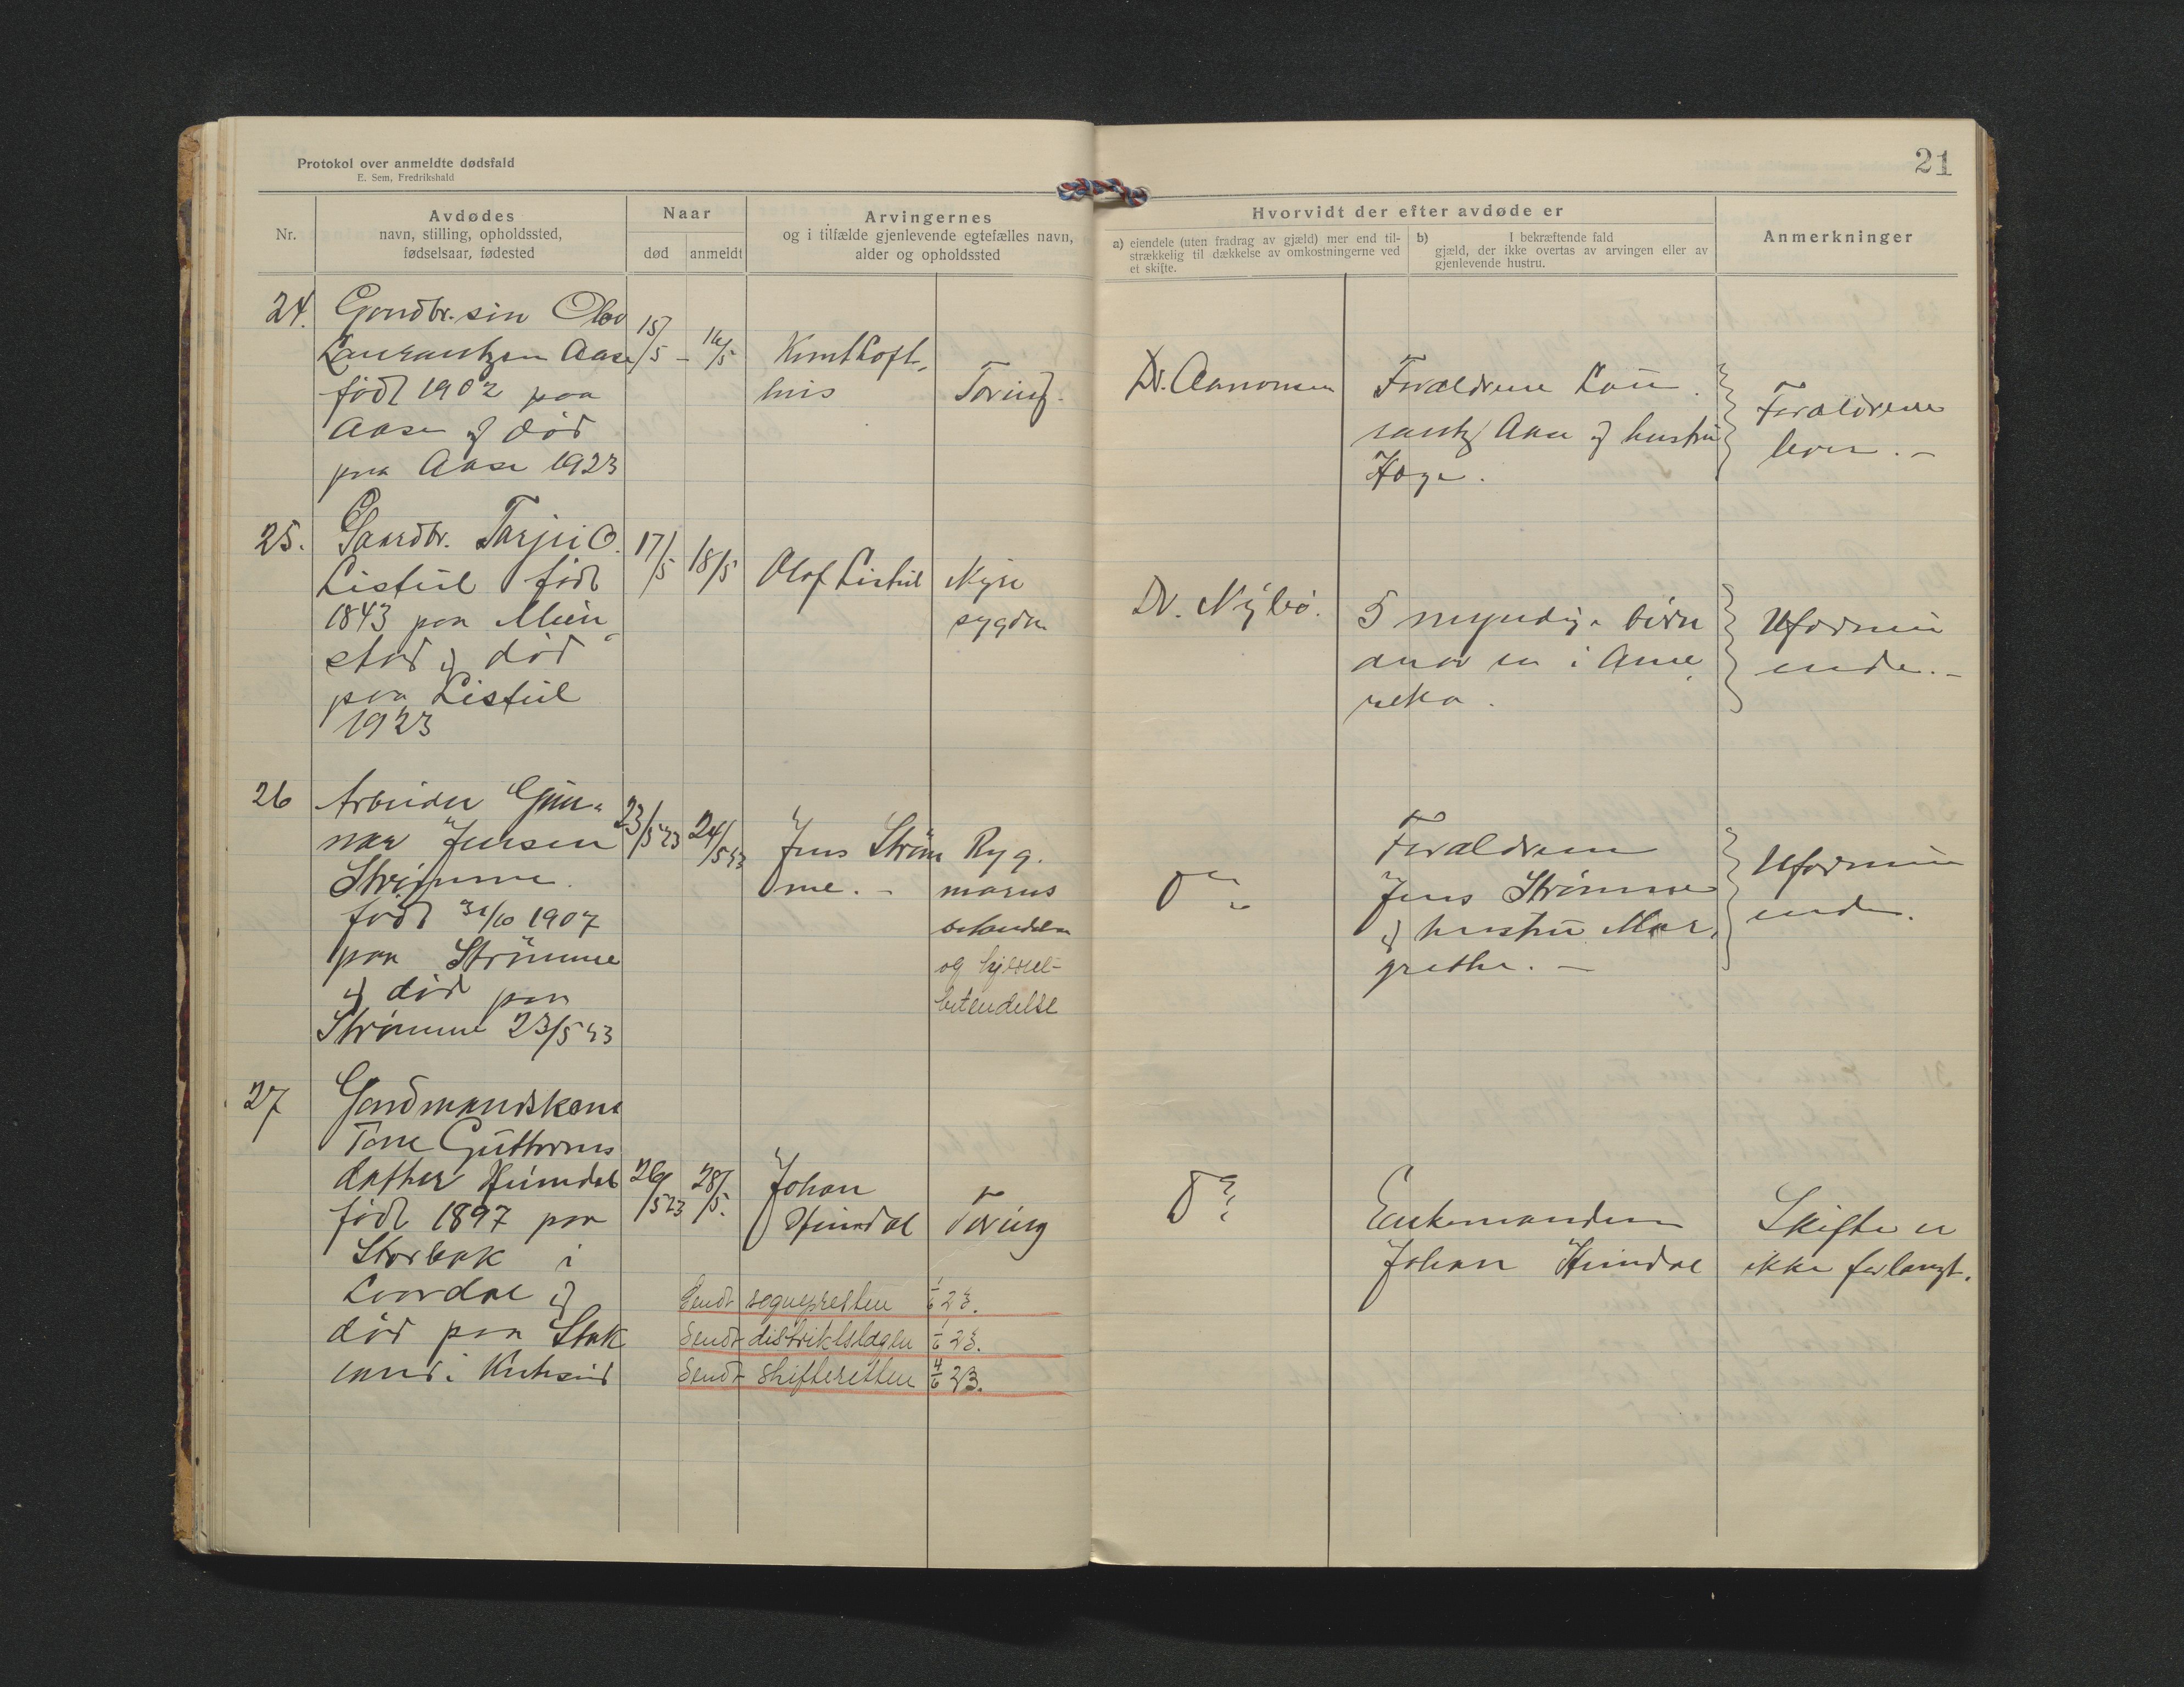 Protokol over anmeldte dødsfald
E. Sem, Fredrikshald
21
Nr.
Avdødes
navn, stilling, opholdssted,
fødselsaar, fødested
Naar
død
anmeldt
Arvingernes
og i tilfælde gjenlevende egtefælles navn,
alder og opholdssted
Hvorvidt der efter avdøde er
a) eiendele (uten fradrag av gjæld) mer end til-
strækkelig til dækkelse av omkostningerne ved
et skifte.
b) I bekræftende fald
gjæld, der ikke overtas av arvingen eller av
gjenlevende hustru.
Anmerkninger
24. Olav
Laurantzen Aase
født 1902 paa
Aase og død
paa Aase 1923
15/5 - 16/5
Knut Loft-
hus
Tæring.
Dr. Aanonsen
Forældrene Lau
rantz Aase og hustru
Forældrene
lever. -
25. Gaardbr. Tarjei O.
Listül født
1843 paa
stad og død
paa Listül
1923
17/5 18/5
Olaf Listül
Nyre
sygdom
Dr. Nybø.
5 myndige børn
en i Ame
rika.
Uformu
ende. -
26 Arbeider Gun-
nar Jensen
Strømme
født 31/10 1907
paa Strømme
og død paa
Strømme 23/5 23
23/5 23 24/5 23
Jens Strøm
me. -
Ryg.
marvs
betændelse
og hjerne-
betendelse
Do
Forældrene
Jens Strømme
og hustru Mar-
grethe. -
Uformu
ende.
27 Gardmandskone
Tone Guttorms
datter Heimdal
født 1897 paa
Storbak i
Laardal og
død paa Stok
land i
26/5 23 28/5.
Johan
Heimdal
Tæring
Do
Enkemanden
Johan Heimdal
Skifte er
ikke forlangt.
Sendt sognepresten 1/6 23.
Sendt distriktslægen 1/6 23.
Sendt skifteretten 4/6 23.